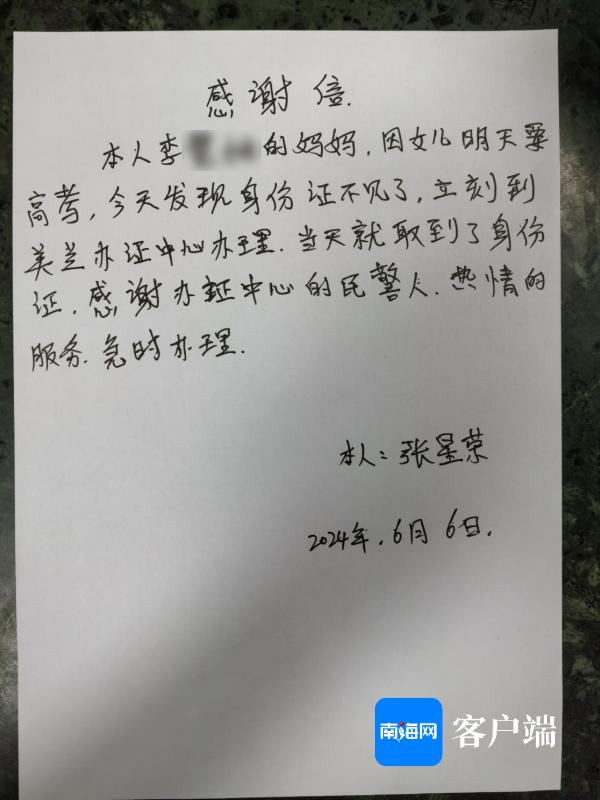 感谢信.
本人李 的妈妈,因女儿明天要
高考,今天发现身份证不见了,立刻到
美兰办证中心办理.当天就取到了身份
证.感谢办证中心的民警人.热情的
服务.急时办理.
本人:张星荣
2024年.6月6日.
南海网 客户端